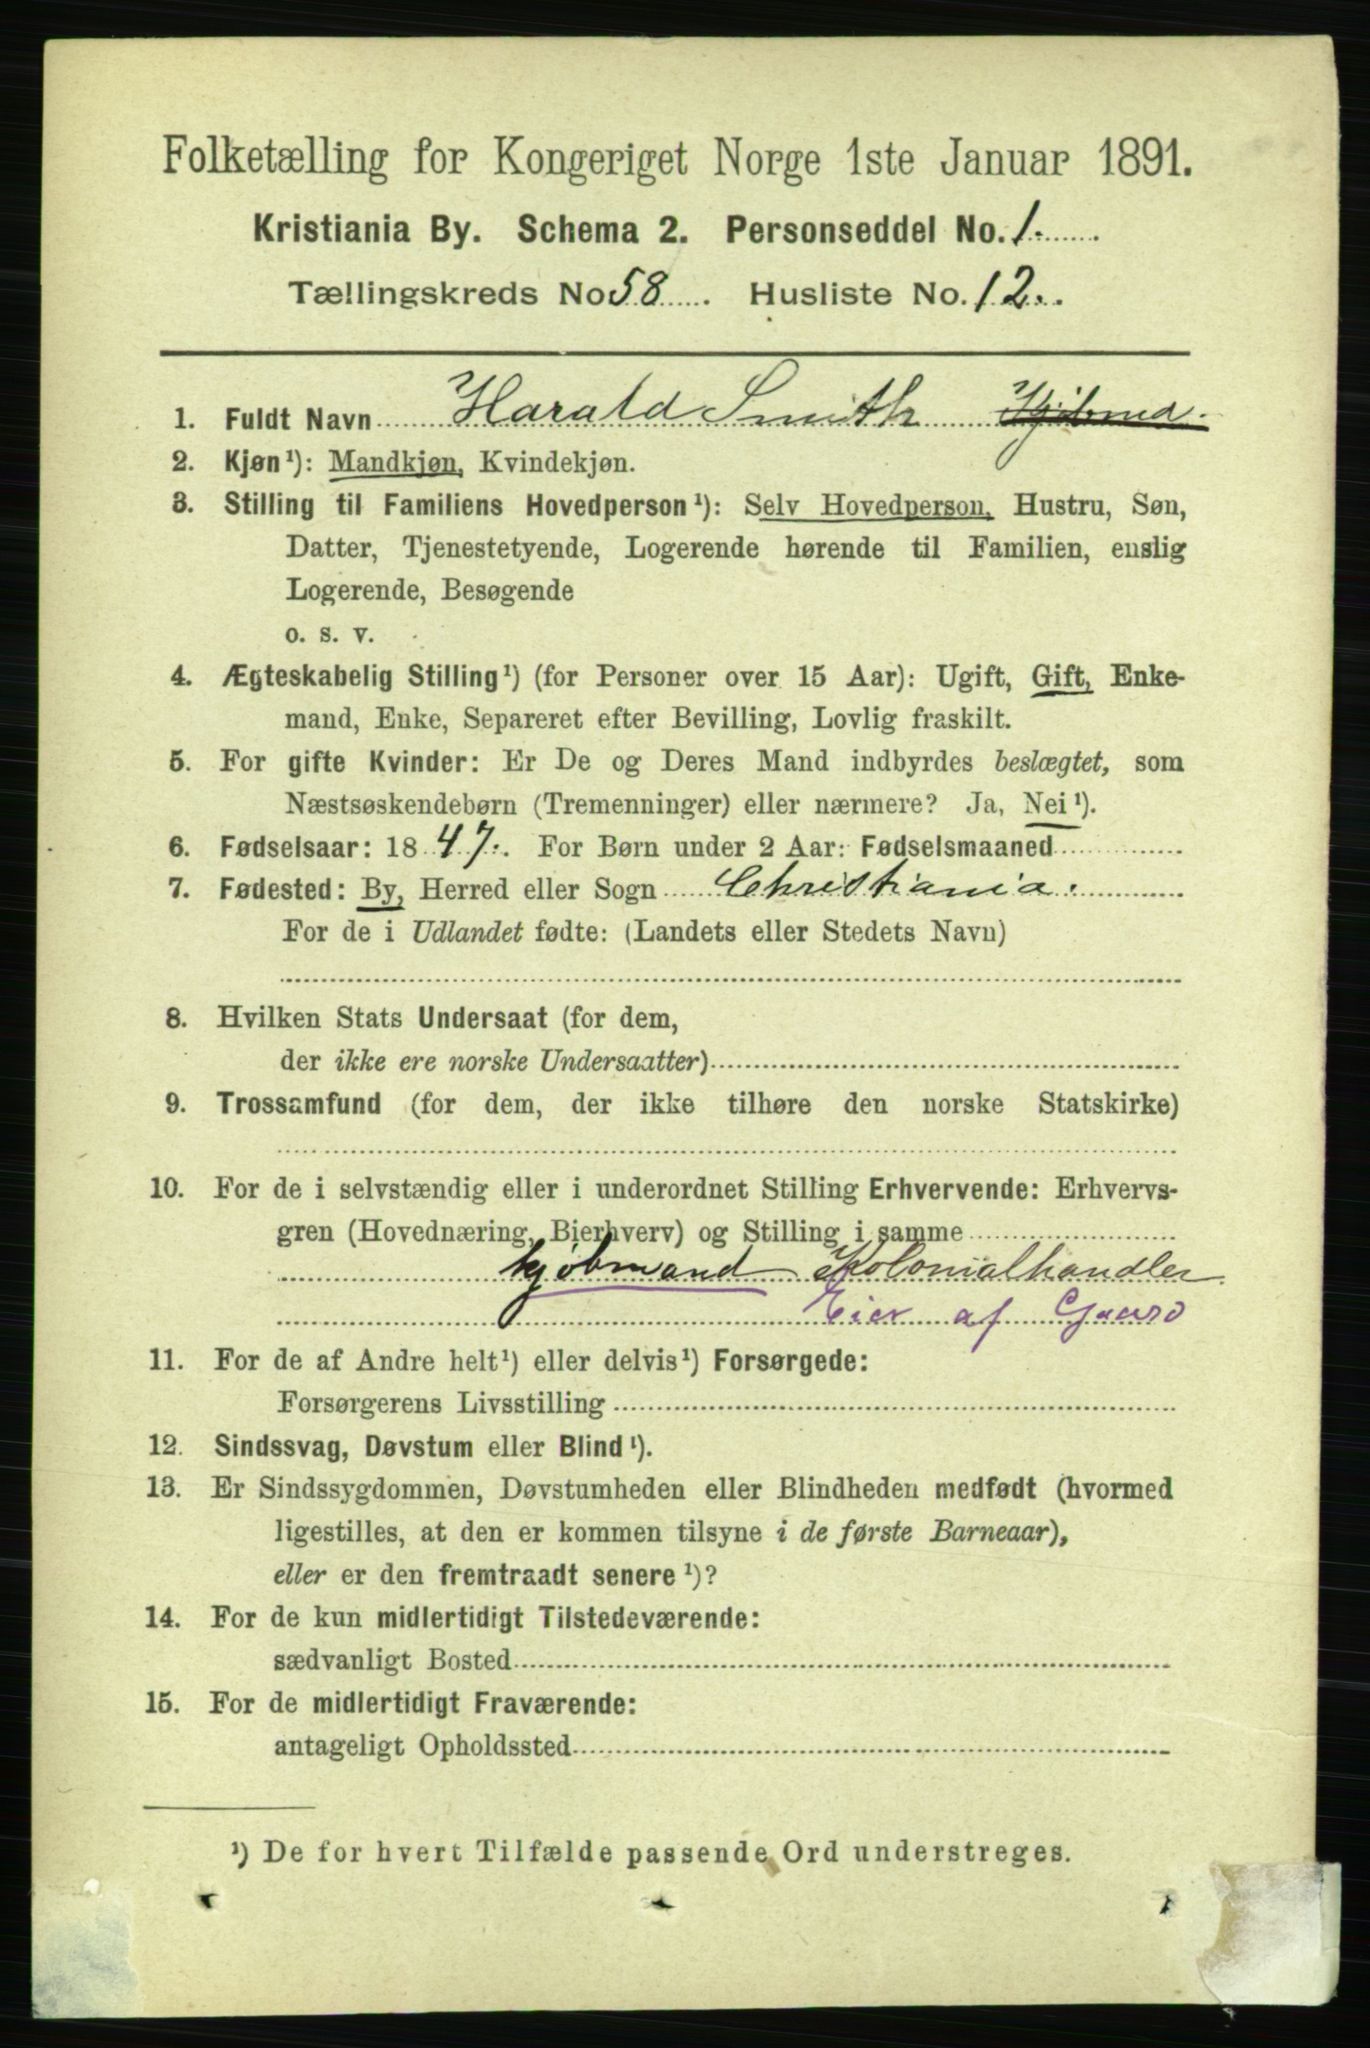 Folketælling for Kongeriget Norge 1ste Januar 1891.
Kristiania By. Schema 2. Personseddel No. 1.
Tællingskreds No 58 . Husliste No. 12.
1. Fuldt Navn Harald Smith Kjøbmd.
2. Kjøn¹): Mandkjøn, Kvindekjøn.
3. Stilling til Familiens Hovedperson¹): Selv Hovedperson, Hustru, Søn,
Datter, Tjenestetyende, Logerende hørende til Familien, enslig
Logerende, Besøgende
o. s. v.
4. Ægteskabelig Stilling¹) (for Personer over 15 Aar): Ugift, Gift, Enke-
mand, Enke, Separeret efter Bevilling, Lovlig fraskilt.
5. For gifte Kvinder: Er De og Deres Mand indbyrdes beslægtet, som
Næstsøskendebørn (Tremenninger) eller nærmere? Ja, Nei¹).
6. Fødselsaar: 1847. For Børn under 2 Aar: Fødselsmaaned
7. Fødested: By, Herred eller Sogn Christiania.
For de i Udlandet fødte: (Landets eller Stedets Navn)
8. Hvilken Stats Undersaat (for dem,
der ikke ere norske Undersaatter)
9. Trossamfund (for dem, der ikke tilhøre den norske Statskirke)
10. For de i selvstændig eller i underordnet Stilling Erhvervende: Erhvervs-
gren (Hovednæring, Bierhverv) og Stilling i samme
kjøbmand Kolonialhandler
Eier af Gaard
11. For de af Andre helt¹) eller delvis¹) Forsørgede:
Forsørgerens Livsstilling
12. Sindssvag, Døvstum eller Blind¹).
13. Er Sindssygdommen, Døvstumheden eller Blindheden medfødt (hvormed
ligestilles, at den er kommen tilsyne i de første Barneaar),
eller er den fremtraadt senere¹)?
14. For de kun midlertidigt Tilstedeværende:
sædvanligt Bosted
15. For de midlertidigt Fraværende:
antageligt Opholdssted
¹) De for hvert Tilfælde passende Ord understreges.